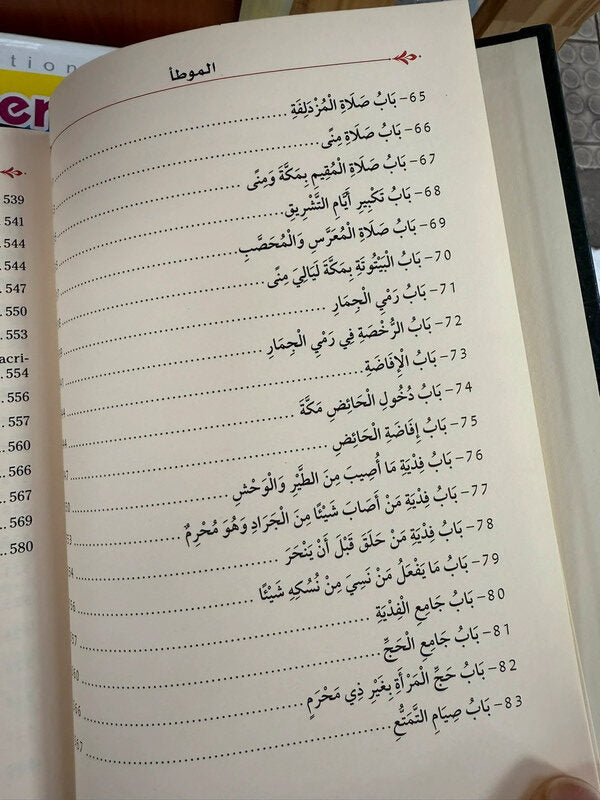 الموطأ
65- بَابُ صَلَاةِ الْمُزْدَلِفَةِ
66- بَابُ صَلَاةِ مِنًى
67- بَابُ صَلَاةِ الْمُقِيمِ بِمَكَّةَ وَمِنًى
68- بَابُ تَكْبِيرِ أَيَّامِ التَّشْرِيقِ
69- بَابُ صَلَاةِ الْمُعَرَّسِ وَالْمُحَصَّبِ
70- بَابُ الْبَيْتُوتَةِ بِمَكَّةَ لَيَالِي مِنًى
71- بَابُ رَمْيِ الْجِمَارِ
72- بَابُ الرُّخْصَةِ فِي رَمْيِ الْجِمَارِ
73- بَابُ الْإِفَاضَةِ
74- بَابُ دُخُولِ الْحَائِضِ مَكَّةَ
75- بَابُ إِفَاضَةِ الْحَائِضِ
76- بَابُ فِدْيَةِ مَا أُصِيبَ مِنَ الطَّيْرِ وَالْوَحْشِ
77- بَابُ فِدْيَةِ مَنْ أَصَابَ شَيْئًا مِنَ الْجَرَادِ وَهُوَ مُحْرِمٌ
78- بَابُ فِدْيَةِ مَنْ حَلَقَ قَبْلَ أَنْ يَنْحَرَ
79- بَابُ مَا يَفْعَلُ مَنْ نَسِيَ مِنْ نُسُكِهِ شَيْئًا
80- بَابُ جَامِعِ الْفِدْيَةِ
81- بَابُ جَامِعِ الْحَجِّ
82- بَابُ حَجِّ الْمَرْأَةِ بِغَيْرِ ذِي مَحْرَمٍ
83- بَابُ صِيَامِ التَّمَتُّعِ
539
541
544
544
547
550
553
acri-
554
556
557
560
566
567
569
580
tion
er